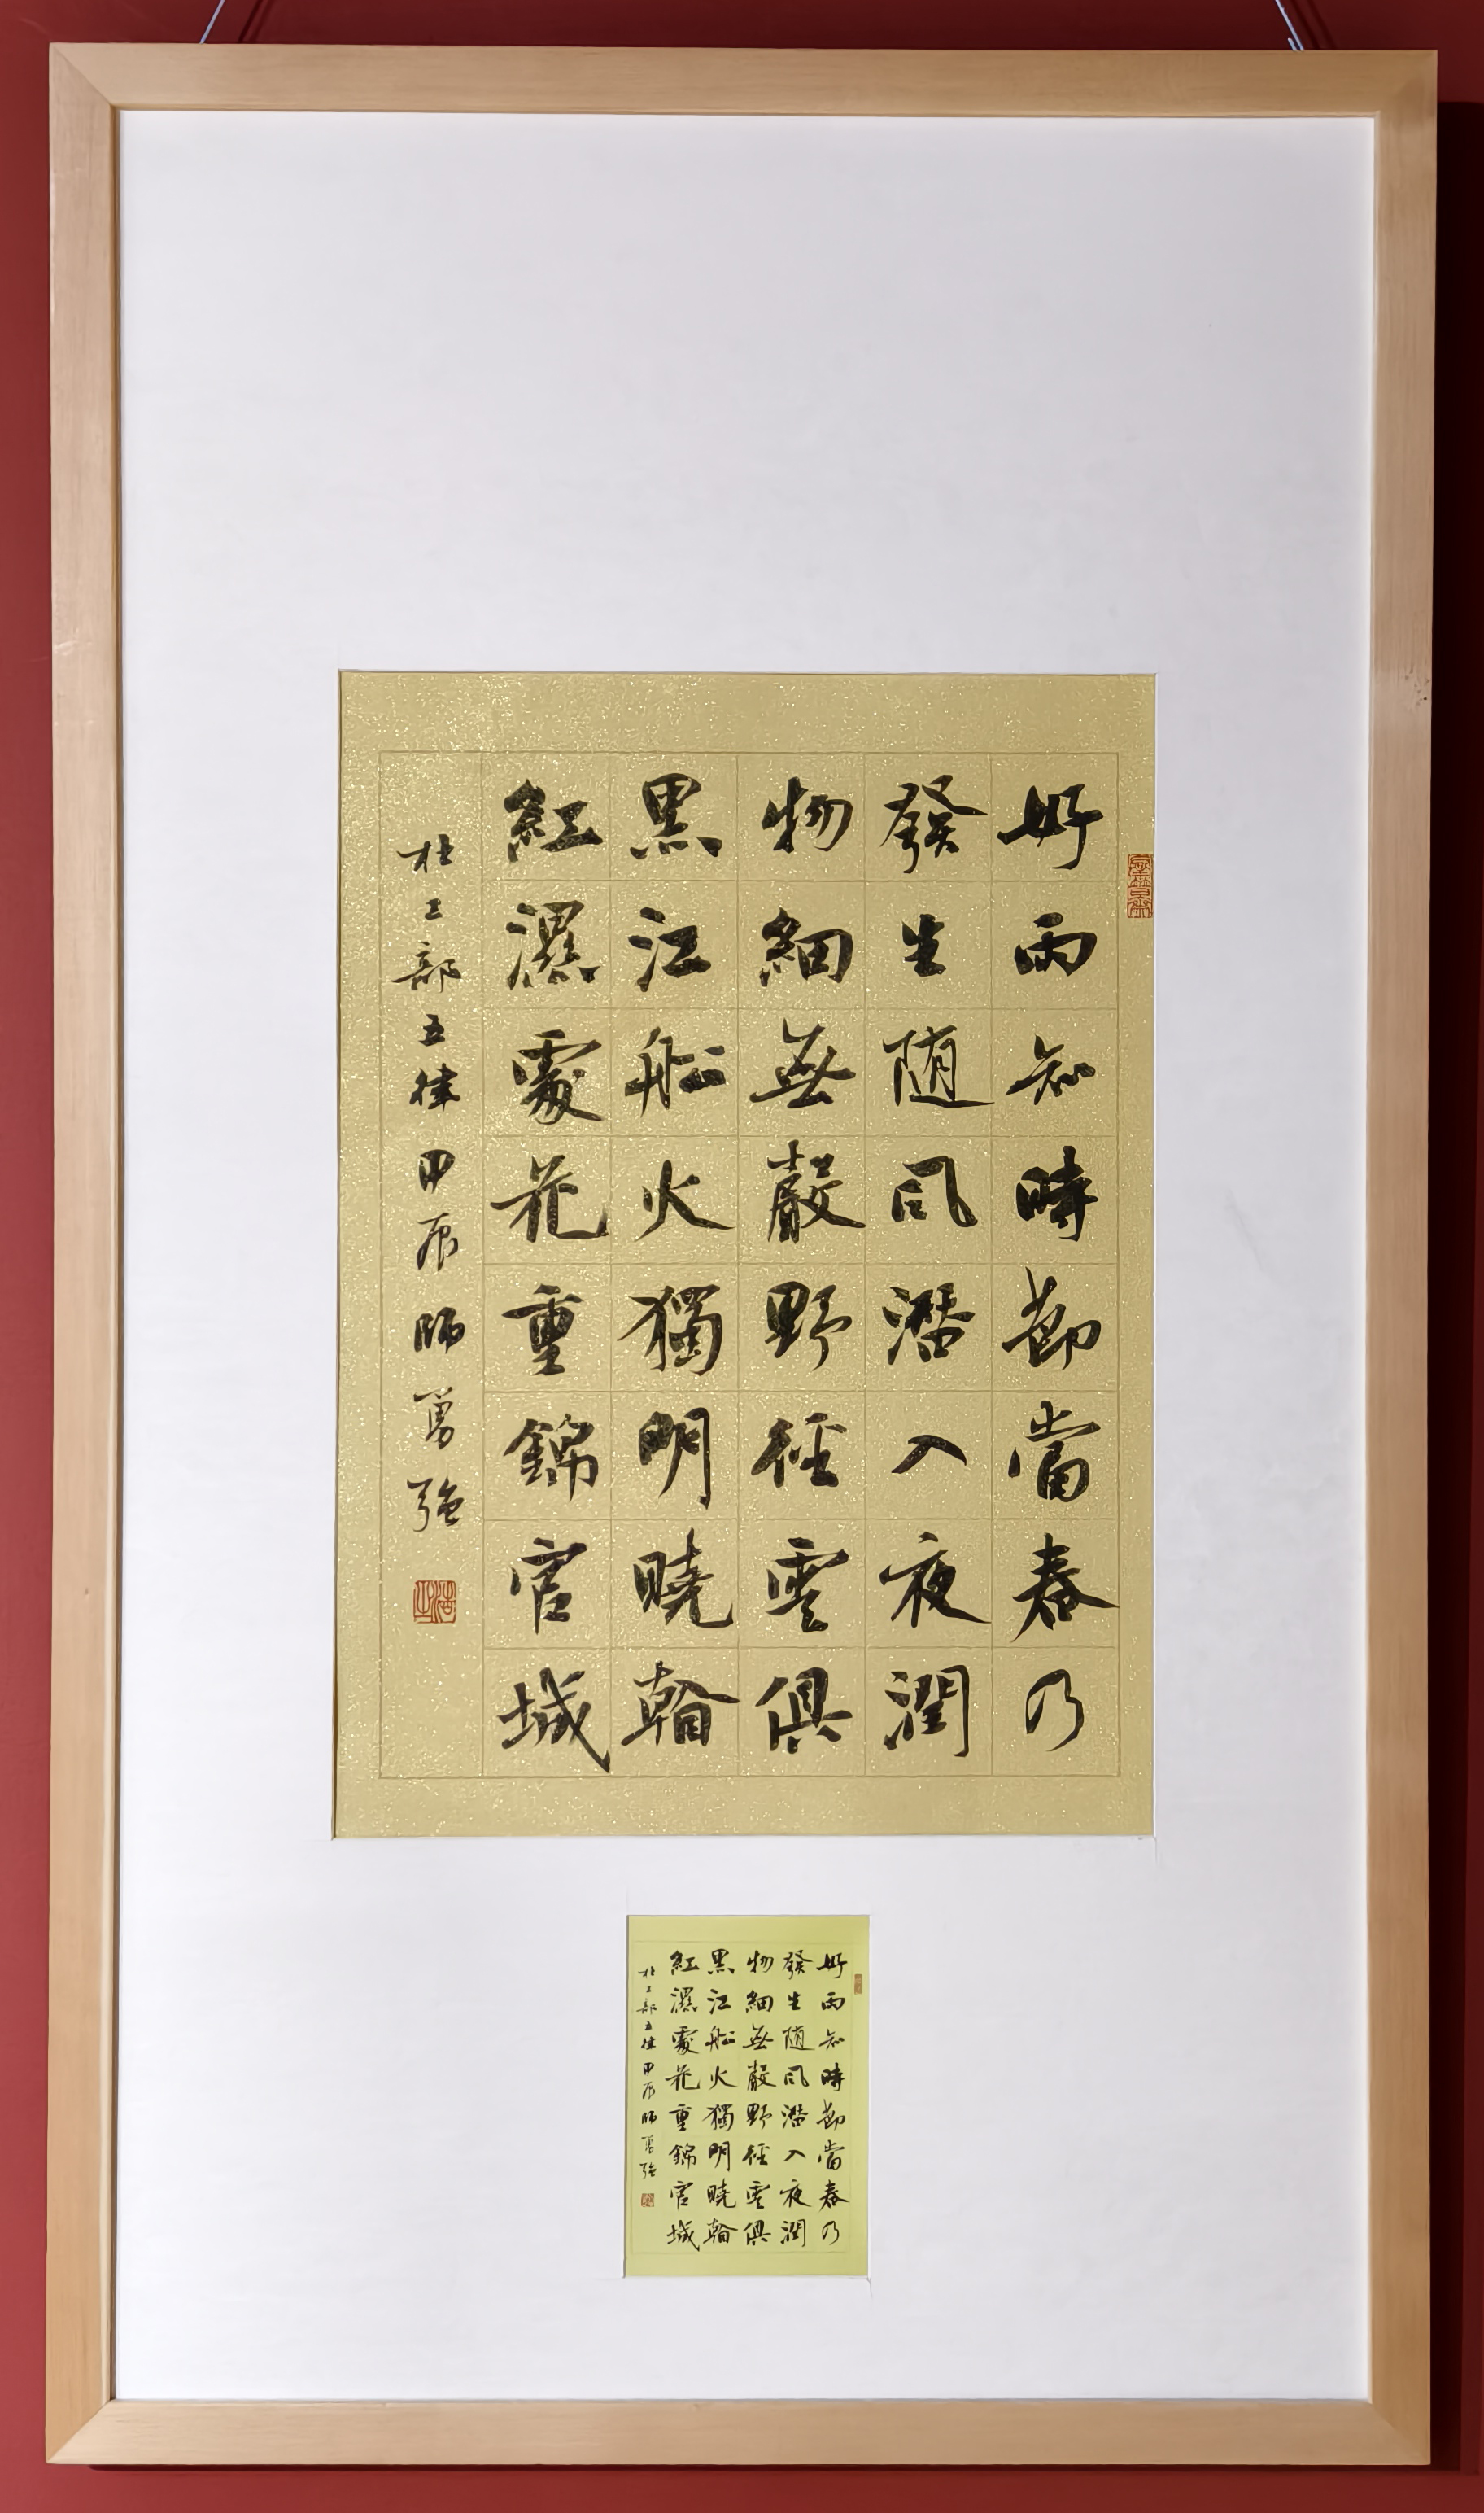 好雨知時節當春乃
發生随風潛入夜潤
物細無聲野徑雲俱
黑江船火獨明曉看
紅濕處花重錦官城
杜工部五律甲辰師勇强
好雨知時節當春乃
發生随風潛入夜潤
物細無聲野徑雲俱
黑江船火獨明曉看
紅濕處花重錦官城
杜工部五律甲辰師勇强